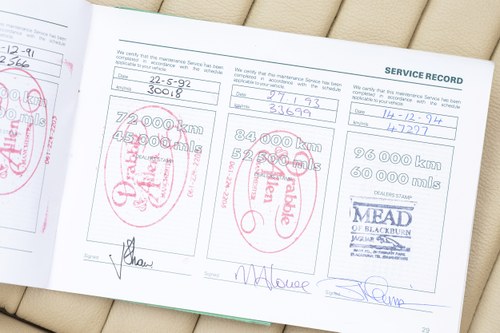 SERVICE RECORD
-12-91
2566
km
mls
We certify that this maintenance Service has been
completed in accordance with the schedule
applicable to your vehicle.
Date 22-5-92
30018
72 000 km
45 000 mls
DEALERS STAMP
Drabble
& Allen
Signed
We certify that this maintenance Service has been
completed in accordance with the schedule
applicable to your vehicle.
Date
33699
84 000 km
52 500 mls
Drabble
& Allen
Signed
We certify that this maintenance Service has been
completed in accordance with the schedule
applicable to your vehicle.
Date 14-12-94
47277
96 000 km
60 000 mls
DEALERS STAMP
MEAD
OF BLACKBURN
JAGUAR
Signed
23